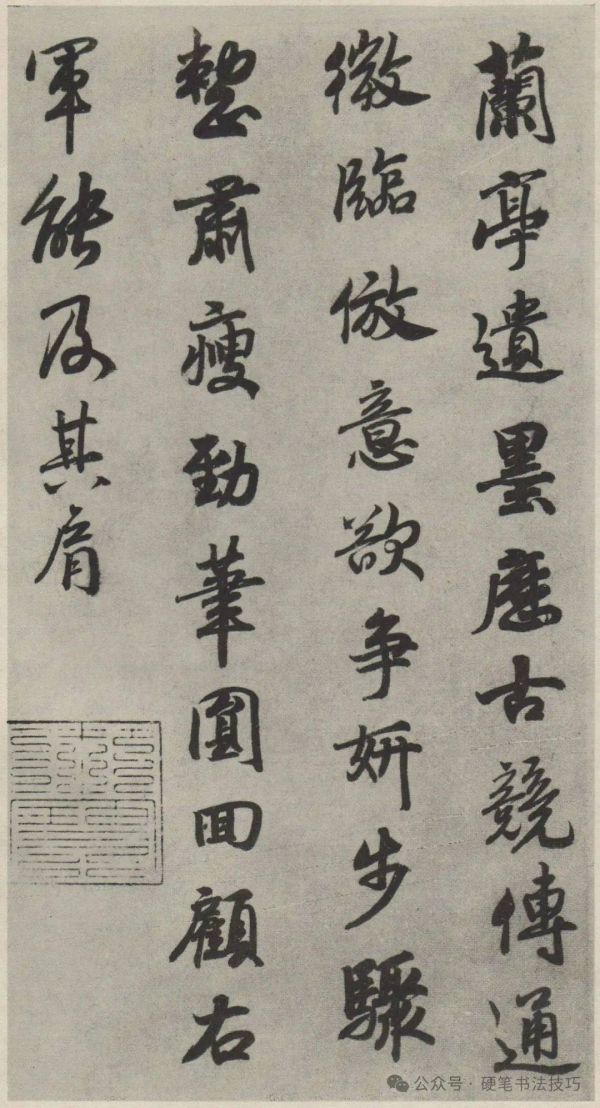 蘭亭遺墨歷古競傳通
微臨倣意欲爭妍步驟
整肅瘦勁筆圓回顧右
軍能及其肩
公众号·硬笔书法技巧